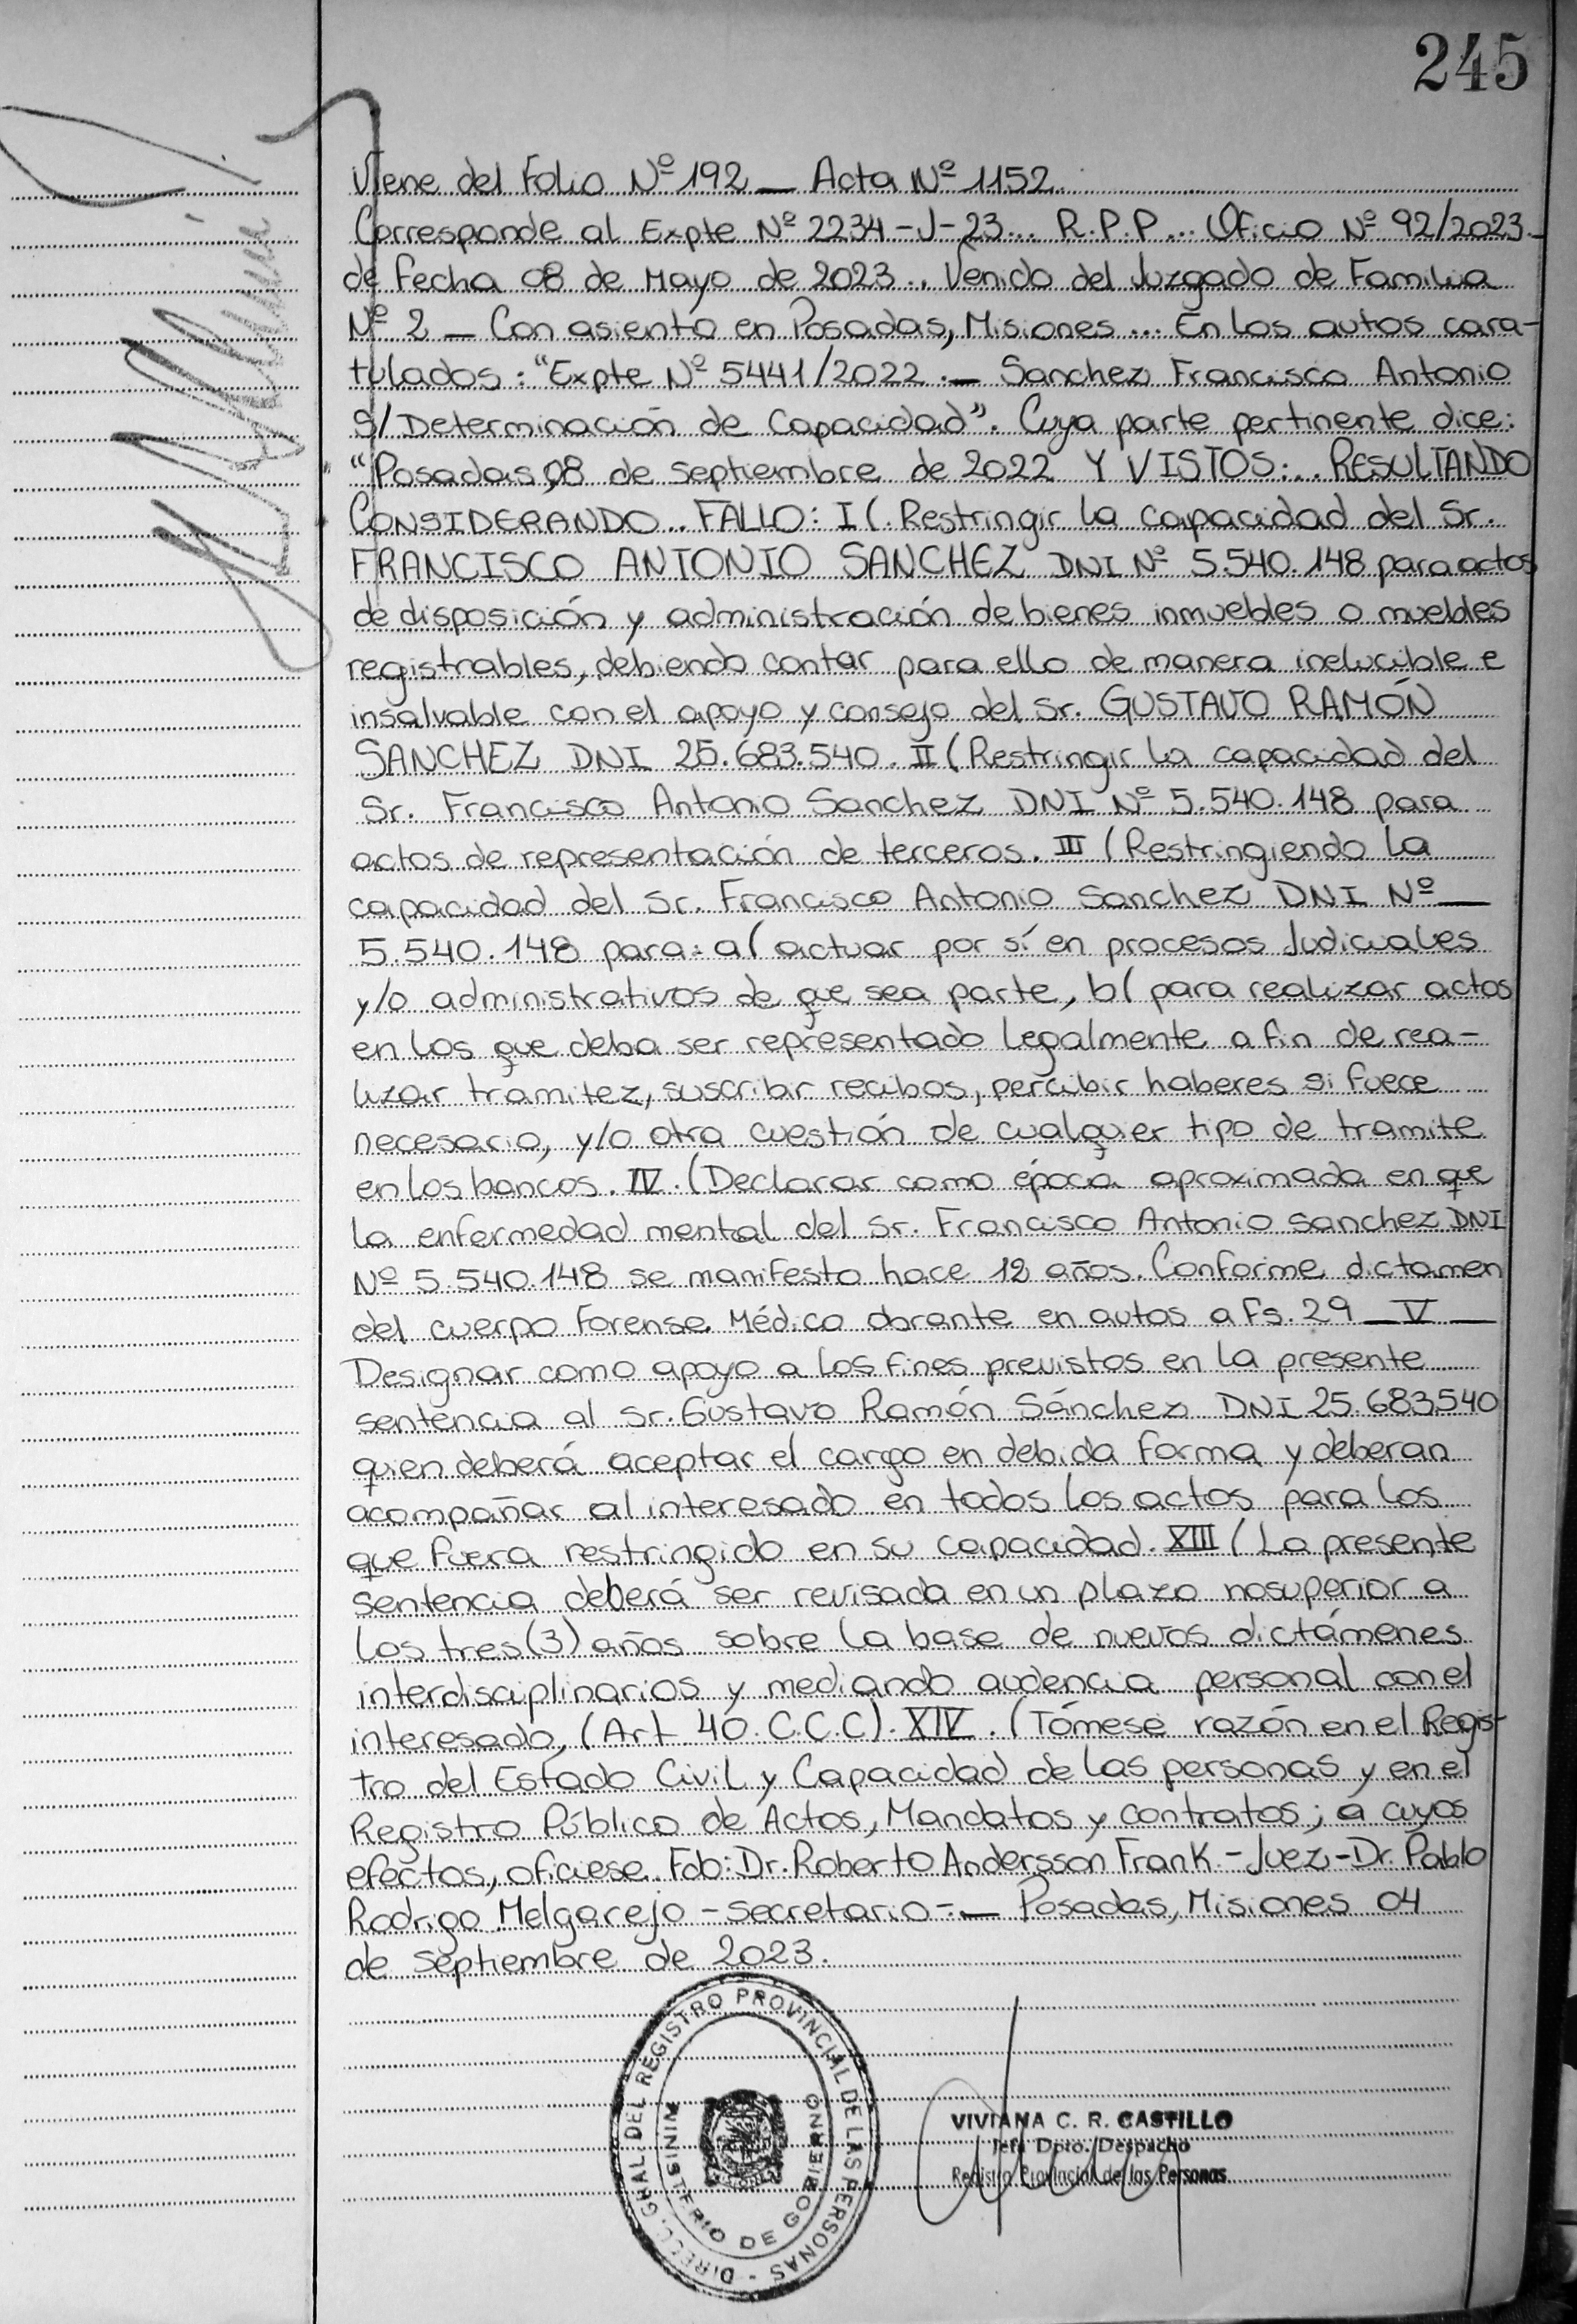 245
Viene del Folio Nº 192 _ Acta Nº 1152
Corresponde al Expte Nº 2234-J-23... R.P.P... Oficio Nº 92/2023._
de Fecha 08 de Mayo de 2023... Venido del Juzgado de Familia
Nº 2 _ Con asiento en Posadas, Misiones... En los autos cara-
tulados: "Expte Nº 5441/2022._ Sanchez Francisco Antonio
S/Determinación de Capacidad". Cuya parte pertinente dice:
"Posadas, 08 de septiembre de 2022 Y VISTOS:.. RESULTANDO
CONSIDERANDO.. FALLO: I (. Restringir la capacidad del Sr.
FRANCISCO ANTONIO SANCHEZ DNI Nº 5.540.148 para actos
de disposición y administración de bienes inmuebles o muebles
registrables, debiendo contar para ello de manera ineluctible e
insalvable con el apoyo y consejo del Sr. GUSTAVO RAMÓN
SANCHEZ DNI 25.683.540. II (Restringir la capacidad del
Sr. Francisco Antonio Sanchez DNI Nº 5.540.148 para
actos de representación de terceros. III (Restringiendo la
capacidad del Sr. Francisco Antonio Sanchez DNI Nº _
5.540.148 para: a( actuar por sí en procesos Judiciales
y/o administrativos de que sea parte, b( para realizar actos
en los que deba ser representado legalmente a fin de rea-
lizar tramitez, suscribir recibos, percibir haberes si fuere
necesario, y/o otra cuestión de cualquier tipo de tramite
en los bancos. IV. (Declarar como época aproximada en que
la enfermedad mental del Sr. Francisco Antonio Sanchez DNI
Nº 5.540.148 se manifesto hace 12 años. Conforme dictamen
del cuerpo Forense Médico obrante en autos a Fs. 29 _ V _
Designar como apoyo a los fines previstos en la presente
sentencia al Sr. Gustavo Ramón Sánchez DNI 25.683.540
quien deberá aceptar el cargo en debida forma y deberan
acompañar al interesado en todos los actos para los
que fuera restringido en su capacidad. XIII (La presente
sentencia deberá ser revisada en un plazo no superior a
los tres (3) años sobre la base de nuevos dictámenes
interdisciplinarios y mediando audencia personal con el
interesado, (Art 40. C.C.C). XIV. (Tómese razón en el Regis-
tro del Estado Civil y Capacidad de las personas y en el
Registro Público de Actos, Mandatos y contratos; a cuyos
efectos, ofíciese. Fdo: Dr. Roberto Andersson Frank - Juez - Dr. Pablo
Rodrigo Melgarejo - Secretario -._ Posadas, Misiones 04
de septiembre de 2023.
DIRECC. GRAL. DEL REGISTRO PROVINCIAL DE LAS PERSONAS -
MINISTERIO DE GOBIERNO
VIVIANA C. R. CASTILLO
Jefa Dpto. Despacho
Registro Provincial de las Personas